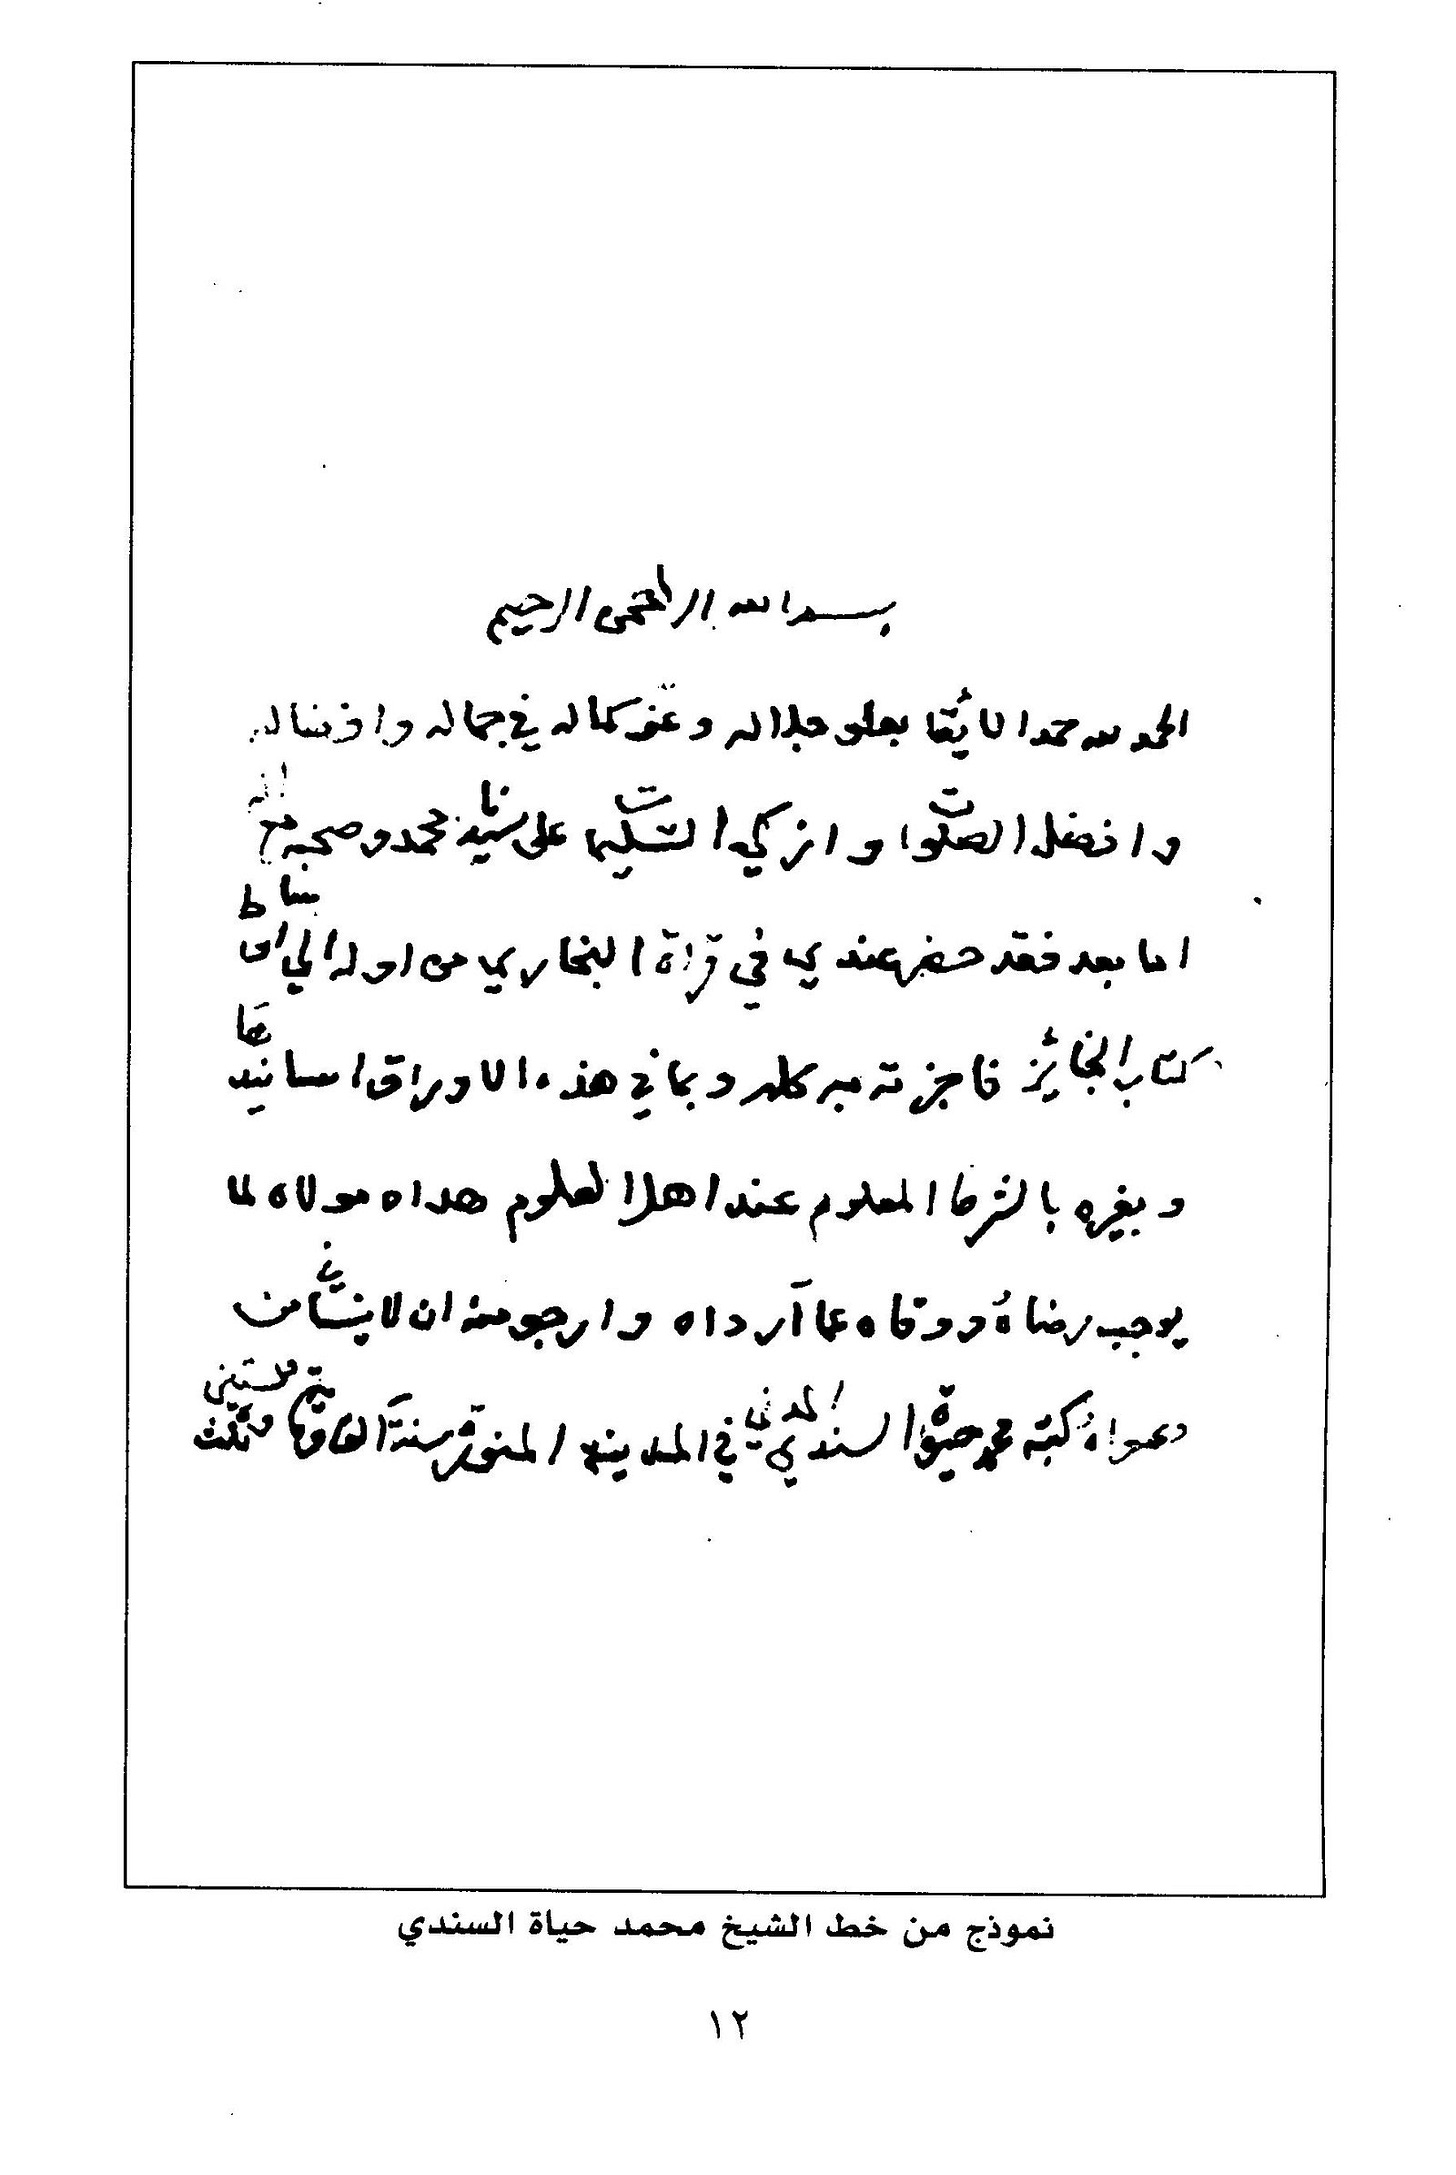 بسم الله الرحمن الرحيم
الحمد لله حمدا لائقا بعلو جلاله وعز كماله في جماله وافضاله
وافضل الصلوات وازكى التسليمات على سيدنا محمد وصحبه مع اله
اما بعد فقد حضر عندي في قراة البخاري من اوله الى اوساط
كتاب الجنائز فاجزته به كله وبما في هذه الاوراق اسانيدها
وبغيره بالشرط المعلوم عند اهل العلوم هداه مولاه لما
يوجب رضاه ووقاه عما آرداه وارجو منه ان لا ينساني من
دعواه كتبه محمد حيوة السندي المدني في المدينة المنورة سنة الف ومائة وثلث وستين
نموذج من خط الشيخ محمد حياة السندي
١٢